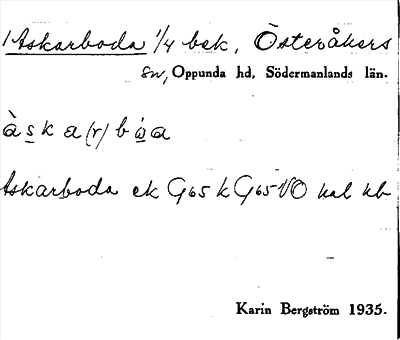 Askarboda 1/4 bsk, Österåkers
sn, Oppunda hd, Södermanlands län.
àska(r)bωa
Askarboda ek G65 k G65 VO hal hb
Karin Bergström 1935.